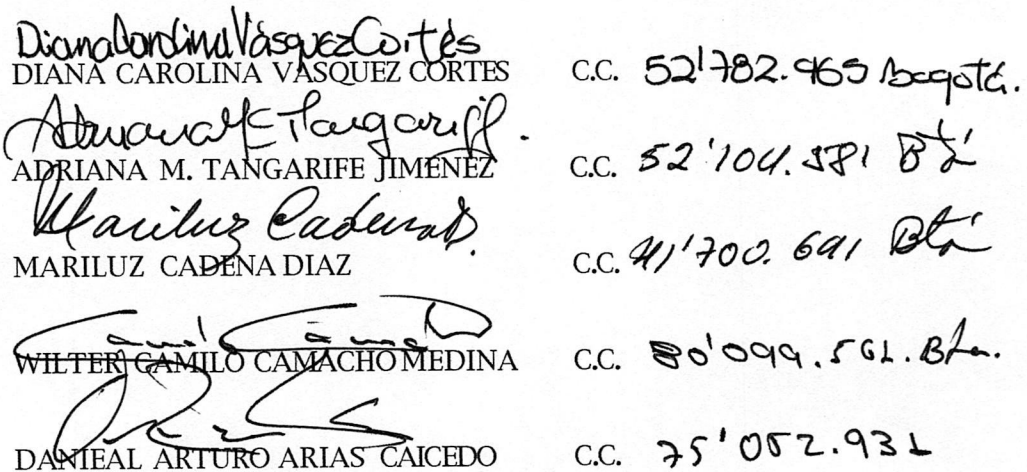 Diana Carolina Vásquez Cortés
DIANA CAROLINA VÁSQUEZ CORTES C.C. 52'782.965 Bogotá.
Adriana M Tangarife.
ADRIANA M. TANGARIFE JIMÉNEZ C.C. 52'104.581 Btá
Mariluz Cadena D.
MARILUZ CADENA DIAZ C.C. 41'700.691 Btá
WILTER CAMILO CAMACHO MEDINA C.C. 80'099.562. Bta.
DANIEAL ARTURO ARIAS CAICEDO C.C. 75'052.931